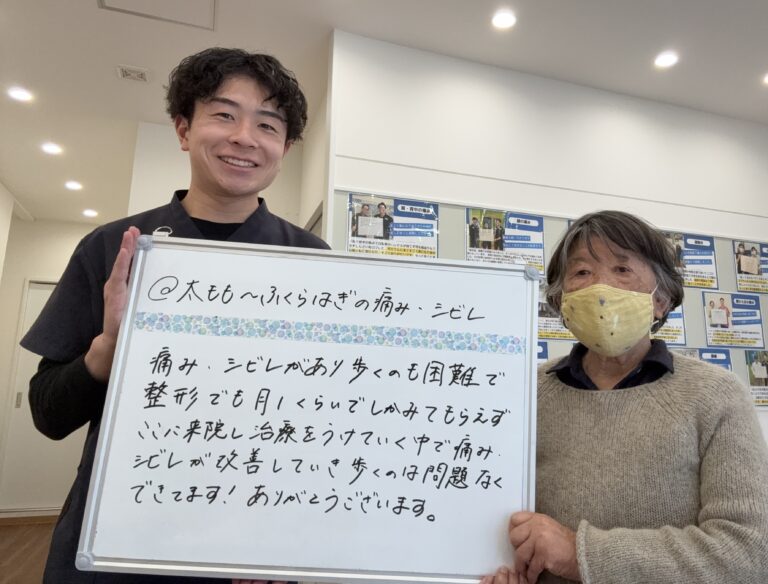 @太もも〜ふくらはぎの痛み・シビレ
痛み・シビレがあり歩くのも困難で
整形でも月1くらいでしかみてもらえず
ここに来院し治療をうけていく中で痛み・
シビレが改善していき歩くのは問題なく
できてます！ありがとうございます。